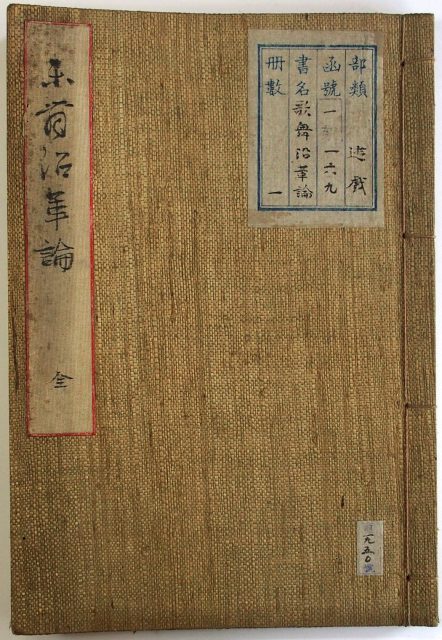 部類 遊戯
函號 一 一六九
書名 歌舞沿革論
册數 一
一九五〇
沿革論
全